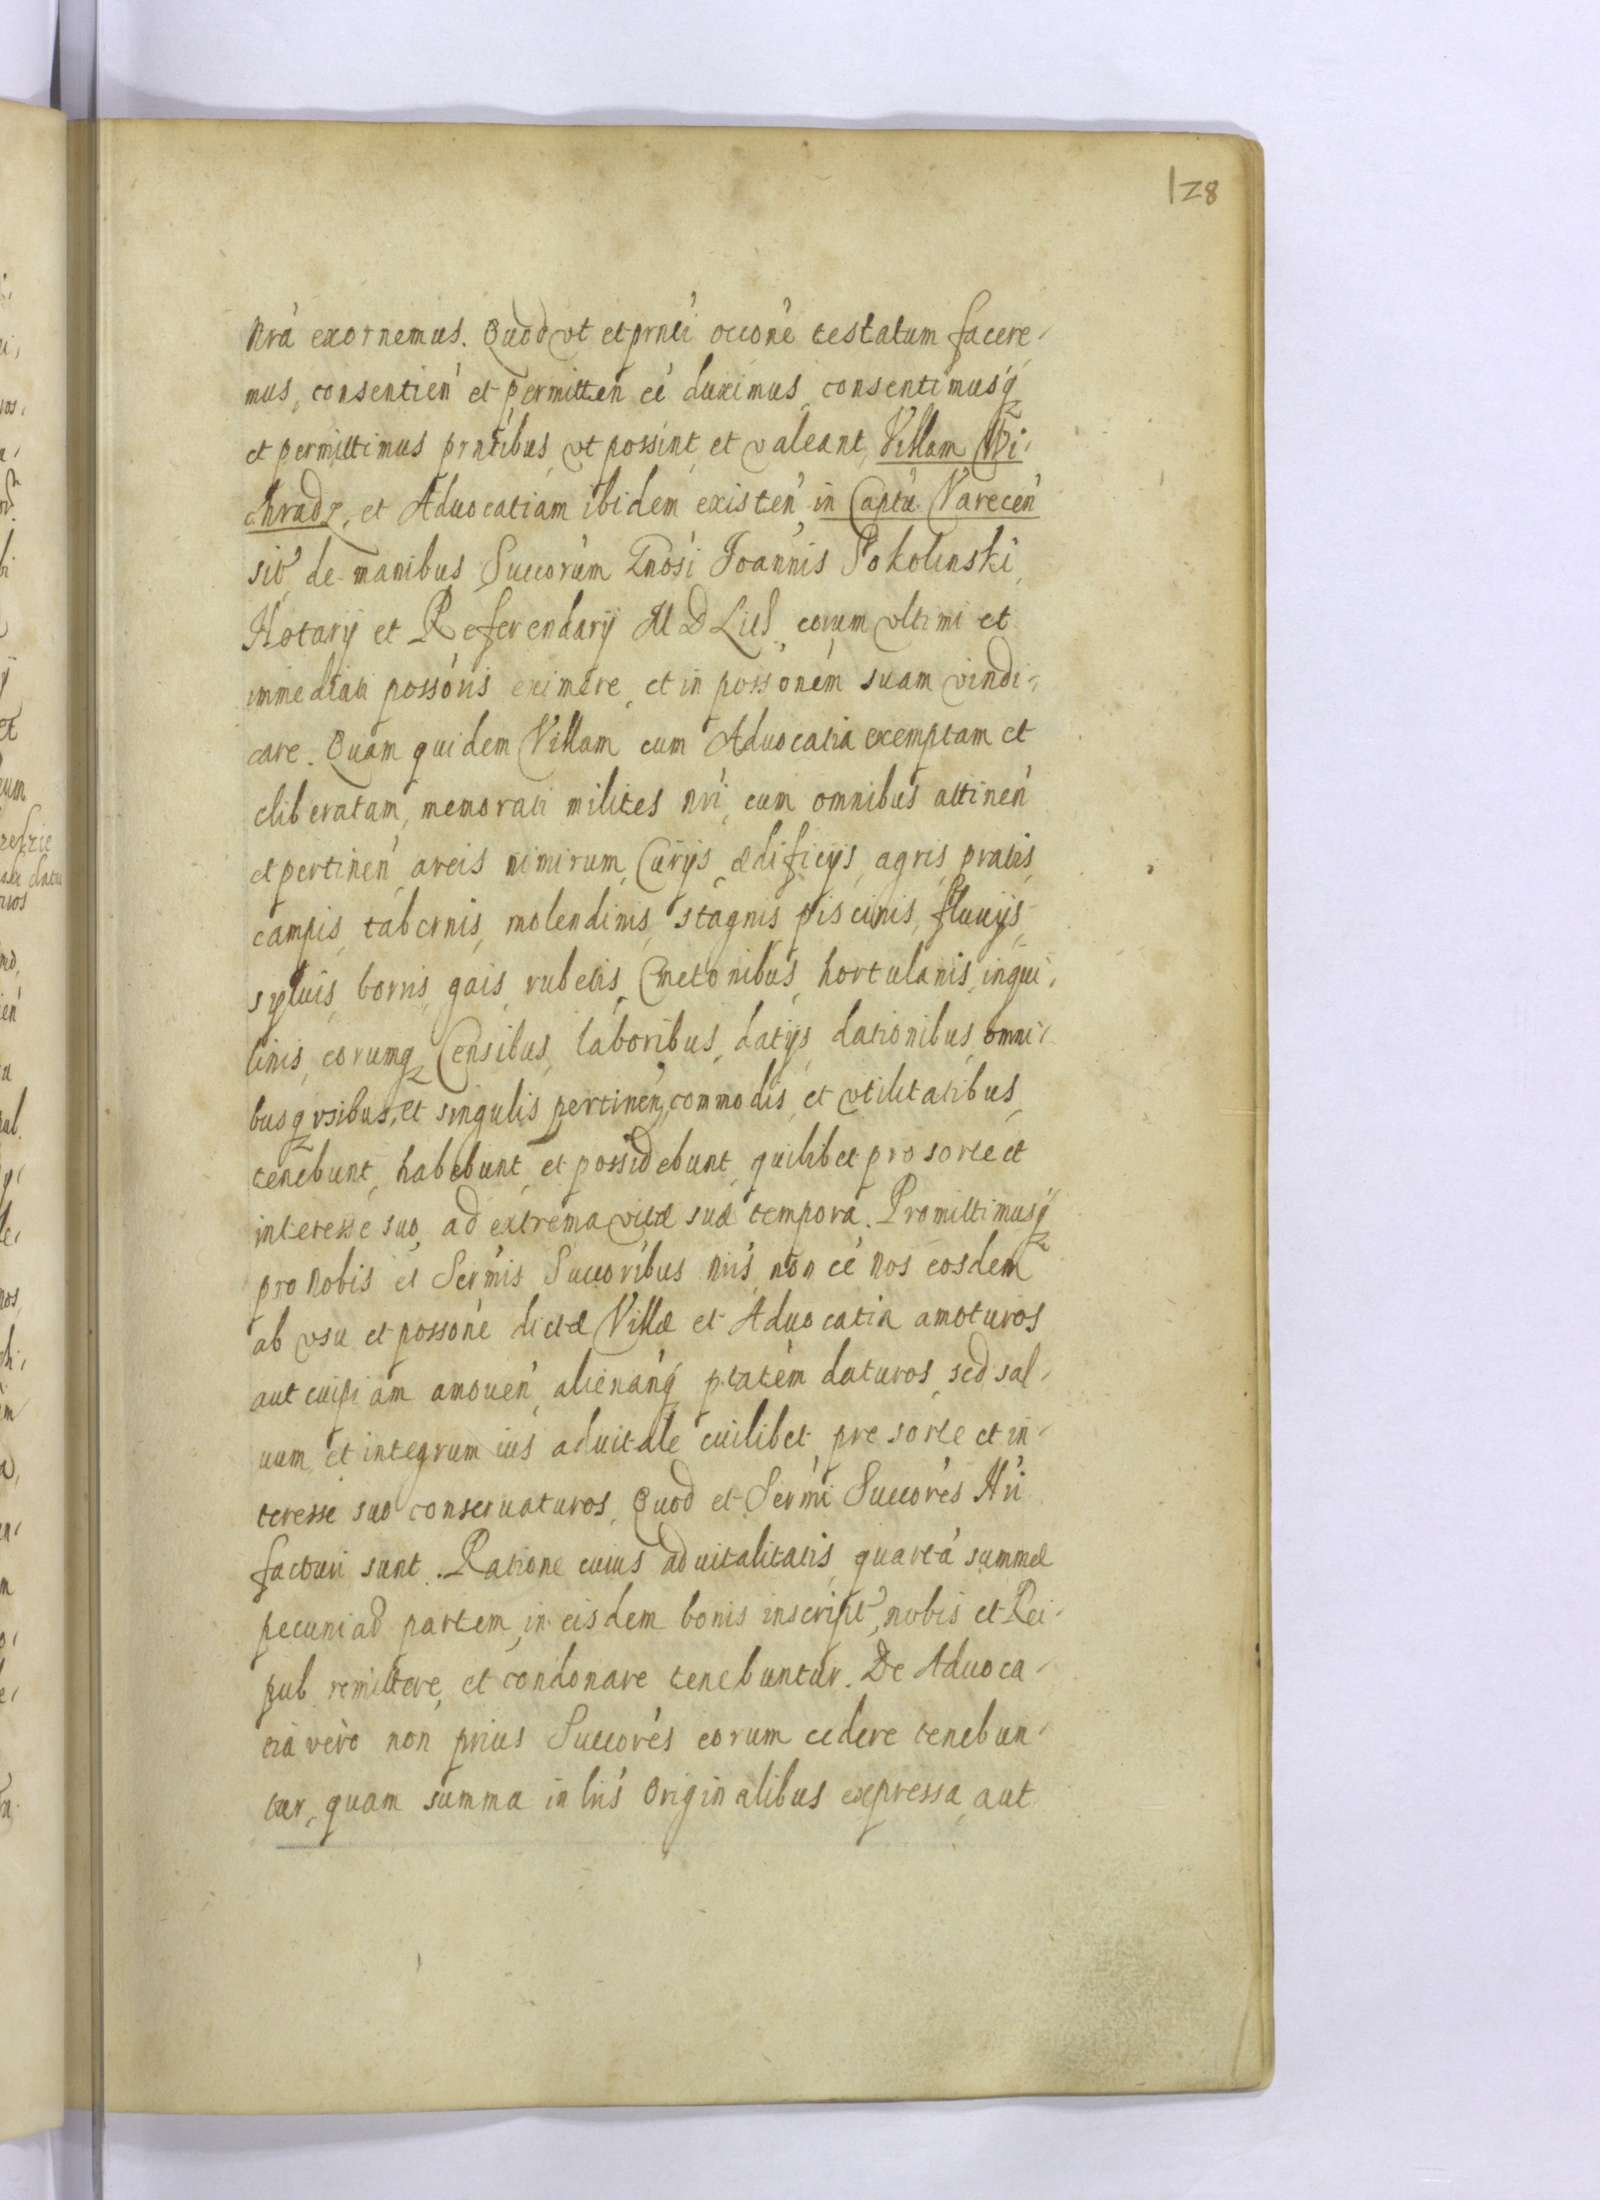 128
Nrá exornemus. Quod vt et prnti occoné testatum facere-
mus, consentien et permitten eé duximus, consentimusq
et permittimus prntibus, vt possint et valeant, Villam Wi-
chradz, et Aduocatiam ibidem existen in Captu Varecen
sit, de manibus Succorum Gnosi Joannis Sokolinski,
Notarij et Referendarij M D Lith, eorum vltimi et
immediati possóris eximere, et in possóném suam vindi-
care. Quam quidem Villam cum Aduocatia exemptam et
eliberatam, memorati milites nri, cum omnibus attinen
et pertinen, areis nimirum, Curijs, ædificijs, agris, pratis,
campis, tabernis, molendinis, stagnis, piscinis, fluuijs,
syluis, borris, gais, rubetis, Cmetonibus, hortulanis, inqui-
linis, eorumq Censibus, laboribus, datijs, dationibus, omni-
busq vsibus, et singulis pertinen, commodis, et vtilitatibus,
tenebunt, habebunt, et possidebunt, quilibet pro sorte et
interesse suo, ad extrema vitæ suæ tempora. Promittimusq
pro Nobis et Sermis Succoribus nris, non eé nos eosdem
ab vsu et possoné dictæ Villæ et Aduocatia amoturos
aut cuipiam amouen, alienanq ptatém daturos, sed sal-
uum et integrum ius aduitale cuilibet pre sorte et in-
teresse suo conseruaturos. Quod et Sermi Succorés Nri
facturi sunt. Ratione cuius aduitalitatis, quartá summæ
pecuniad partem, in eisdem bonis inscript, nobis et Rei-
pub remittere, et condonare tenebuntur. De Aduoca-
tiá vèro non prius Succorés eorum cedere tenebun-
tur, quam summa in lris Originalibus expressa, aut